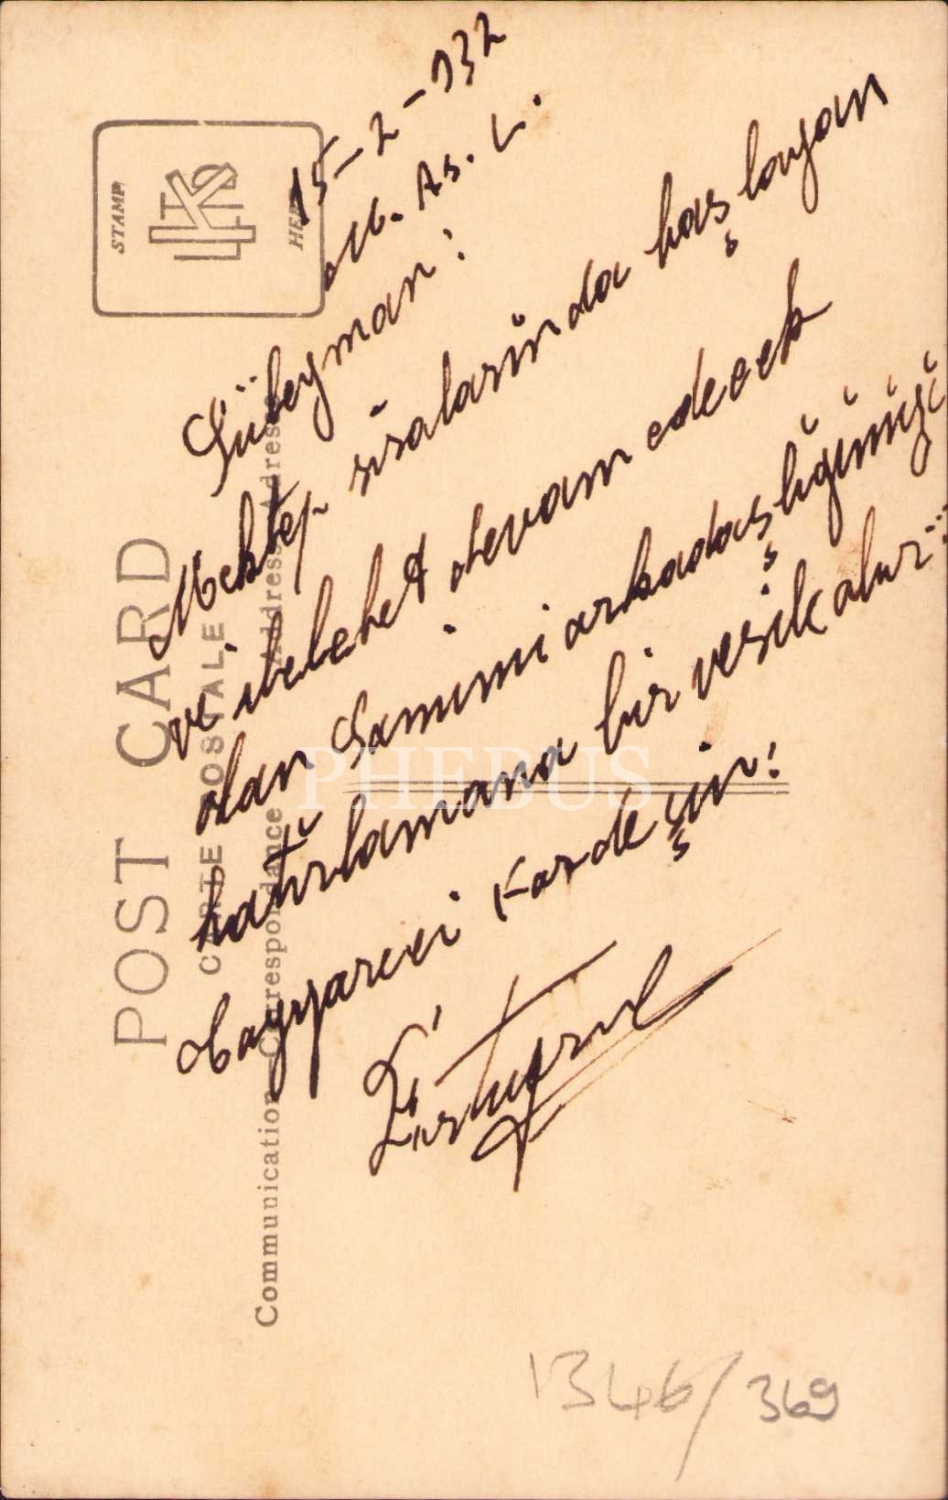 15-2-932
M. As. L.
Süleyman!
Mektep sıralarinda başlayan
ve ilelebet devam edecek
olan Samimi arkadaşlığımızı
hatırlamana bir vesile olur...
Tayyareci Kardeşin!
Ertuğrul
STAMP
HERE
LTD
POST CARD
CARTE POSTALE
Communication—Correspondance
Address—Adresse
PHEBUS
1346/369